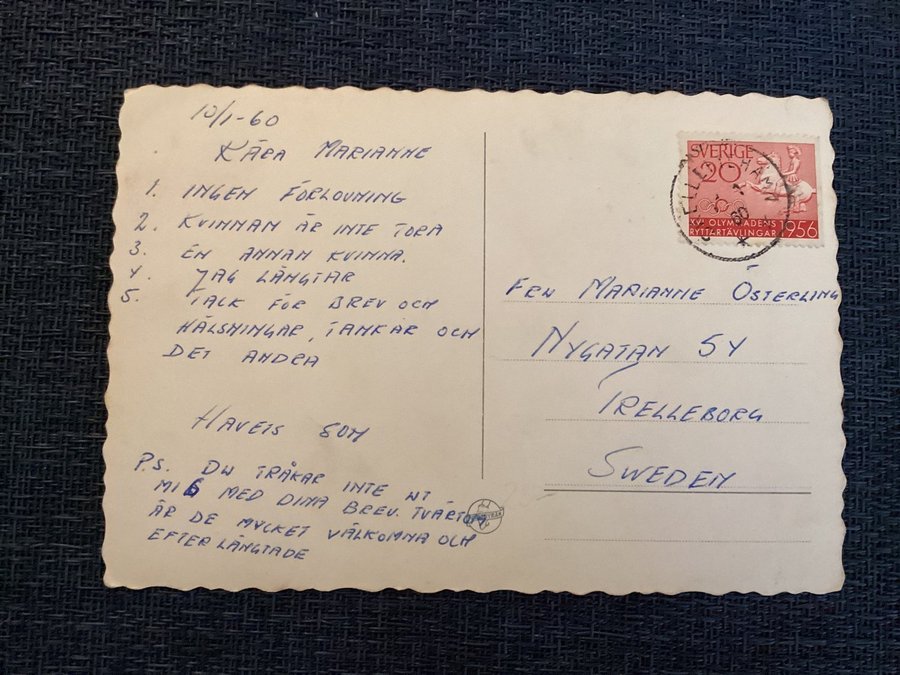 10/1-60
KÄRA MARIANNE
1. INGEN FÖRLOVNING
2. KVINNAN ÄR INTE TORA
3. EN ANNAN KVINNA.
4. JAG LÄNGTAR
5. TACK FÖR BREV OCH
HÄLSNINGAR, TANKAR OCH
DET ANDRA
HAVETS SON
P.S. DU TRÅKAR INTE UT
MIG MED DINA BREV. TVÄRTOM
ÄR DE MYCKET VÄLKOMNA OCH
EFTERLÄNGTADE
SVERIGE
20
XVI OLYMPIADENS
RYTTARTÄVLINGAR 1956
FRU MARIANNE ÖSTERLING
NYGATAN 54
TRELLEBORG
SWEDEN